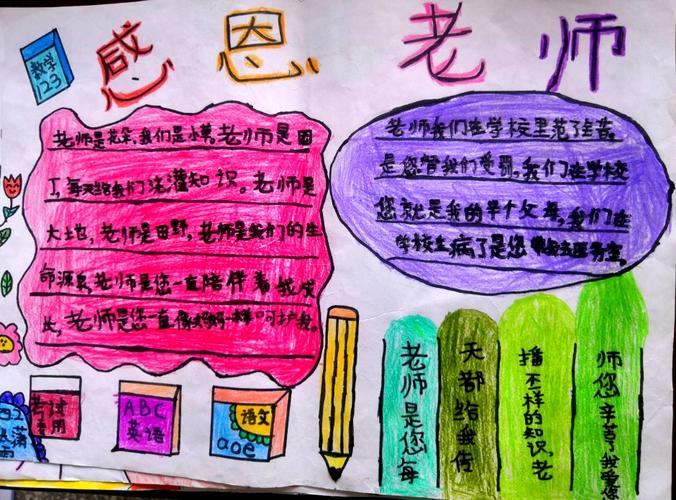 感恩老师
数学
123
老师是花朵,我们是小草,老师是园
丁,每天给我们浇灌知识。老师是
大土地,老师是田野,老师是我们的生
命源泉,老师是您一直陪伴着我成
长,老师是您一直像妈妈一样呵护我。
老师我们在学校里犯了错
是您管我们受罚,我们在学校
您就是我的半个父母,我们在
学校生病了是您
考试
专用
ABC
英语
语文
aoe
老师是您每
天都给我传
播不一样的知识,老
师您辛苦了我爱您